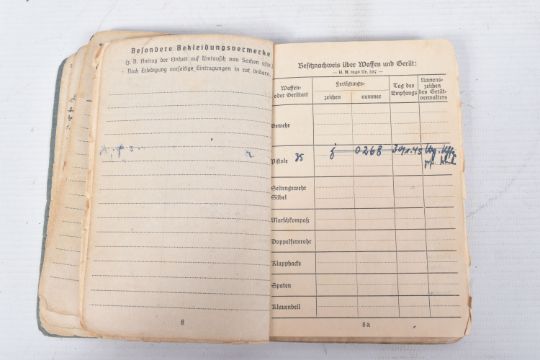 Besondere Bekleidungsvermerke
Z. B. Antrag der Einheit auf Umtausch von Sachen
Nach Erledigung vorseitige Eintragungen in rot
8
Besitznachweis über Waffen und Gerät:
Waffen-
oder Geräteart
Fertigungs-
zeichen
nummer
Tag des
Empfangs
Namens-
zeichen
des Gerät-
verwalters
Gewehr
Pistole 35 j 0268
Seitengewehr
Säbel
Marschkompaß
Doppelfernrohr
Klapphacke
Spaten
Klauenbeil
8a